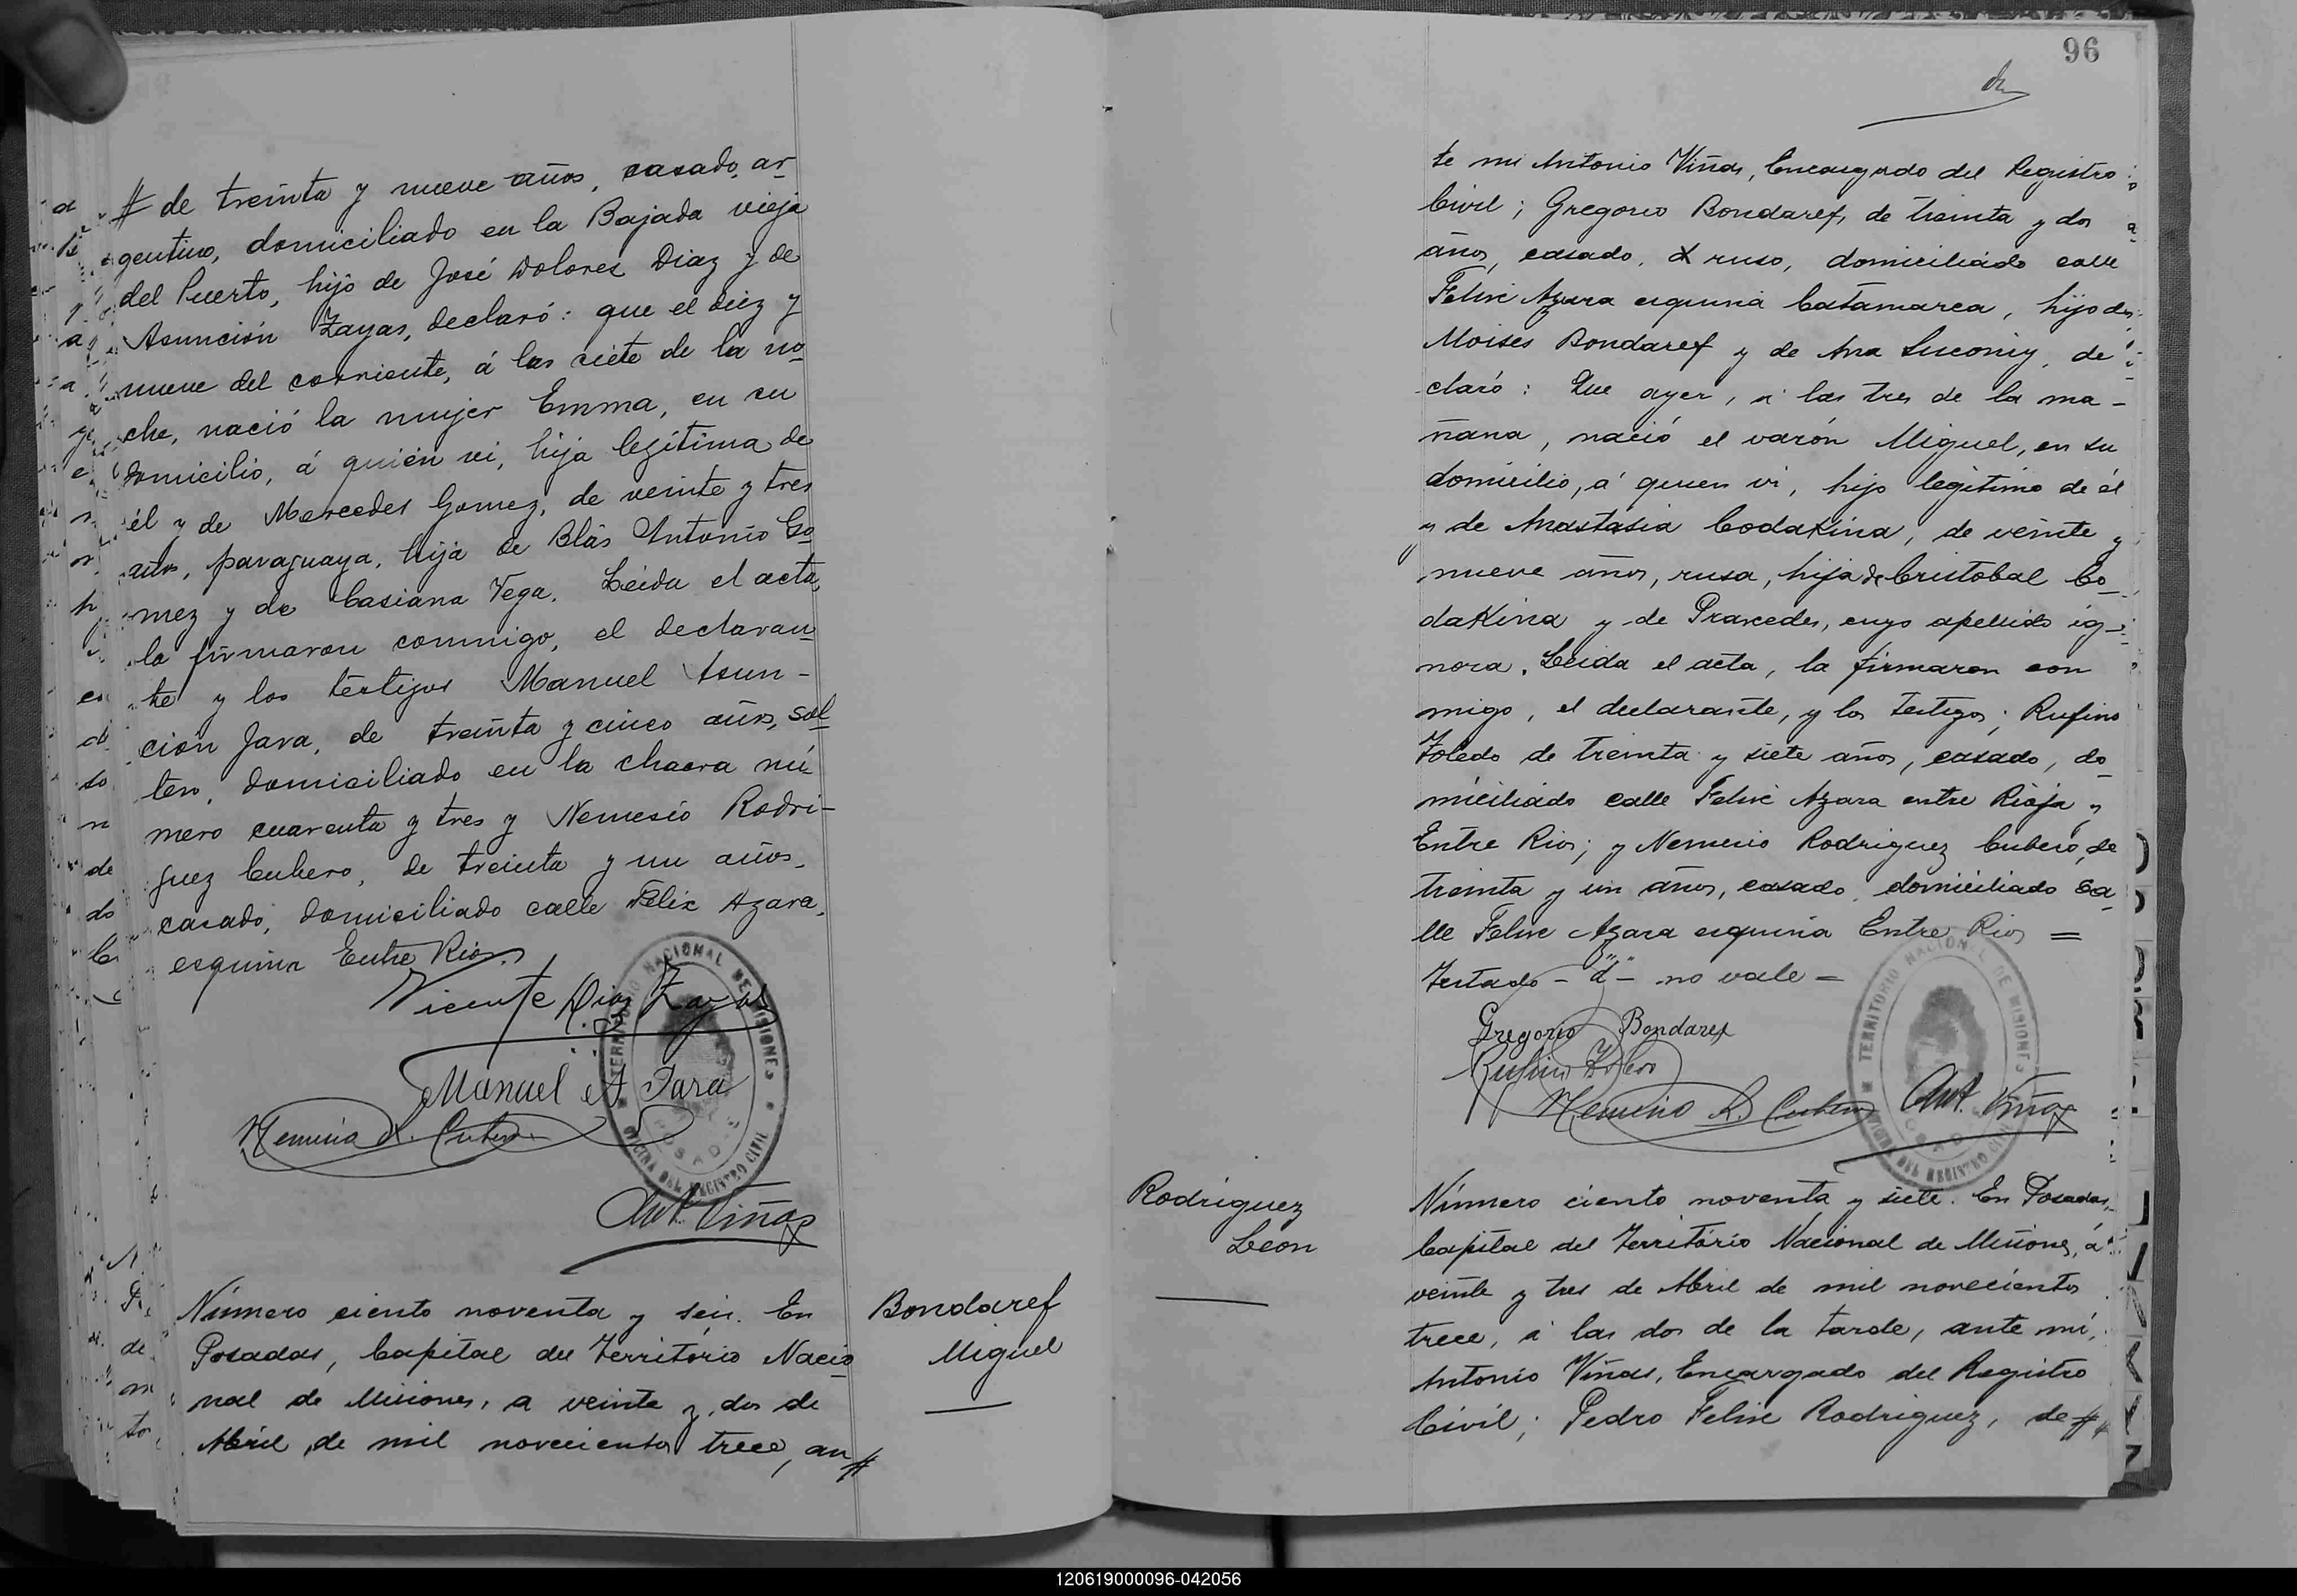 # de treinta y nueve años, casado, ar-
gentino, domiciliado en la Bajada vieja
del Puerto, hijo de José Dolores Diaz y de
Asunción Zayas, declaró: que el diez y
nueve del corriente, á las siete de la no-
che, nació la mujer Emma, en su
domicilio, á quién vi, hija legítima de
él y de Mercedes Gomez, de veinte y tres
años, paraguaya, hija de Blás Antonio Go-
mez y de Casiana Vega. Leida el acta
la firmaron conmigo, el declaran-
te y los testigos Manuel Asun-
ción Jara, de treinta y cinco años, sol-
tero, domiciliado en la chacra nú-
mero cuarenta y tres y Nemesio Rodri-
guez Cubero, de treinta y un años,
casado, domiciliado calle Félix Azara,
esquina Entre Rios.
Vicente Diaz Zayas
Manuel A. Jara
Nemesio R. Cubero
TERRITORIO NACIONAL DE MISIONES
OFICINA DEL REGISTRO CIVIL
POSADAS
Ant. Viñas
Bondaref
Miguel
Número ciento noventa y seis. En
Posadas, Capital del Territorio Nacio-
nal de Misiones, a veinte y dos de
Abril de mil novecientos trece, an#
96
te mi Antonio Viñas, Encargado del Registro
Civil; Gregorio Bondaref, de treinta y dos
años, casado, ruso, domiciliado calle
Felix Azara esquina Catamarca, hijo de
Moises Bondaref y de Ana, de-
claró: Que ayer, á las tres de la ma-
ñana, nació el varón Miguel, en su
domicilio, á quien vi, hijo legítimo de él
y de Anastasia Codakina, de veinte y
nueve años, rusa, hija de Cristobal Co-
dakina y de Praxedes, cuyo apellido ig-
nora. Leida el acta, la firmaron con
migo, el declarante, y los testigos; Rufino
Toledo de treinta y siete años, casado, do-
miciliado calle Felix Azara entre Rioja y
Entre Rios; y Nemesio Rodriguez Cubero, de
treinta y un años, casado, domiciliado ca-
lle Felix Azara esquina Entre Rios =
Testado - "d" - no vale =
Gregorio Bondaref
Rufino Toledo
Nemesio R. Cubero
Ant. Viñas
TERRITORIO NACIONAL DE MISIONES
OFICINA DEL REGISTRO CIVIL
POSADAS
Rodriguez
Leon
Número ciento noventa y siete. En Posadas,
Capital del Territorio Nacional de Misiones, á
veinte y tres de Abril de mil novecientos
trece, á las dos de la tarde, ante mí,
Antonio Viñas, Encargado del Registro
Civil; Pedro Felix Rodriguez, de #
120619000096-042056